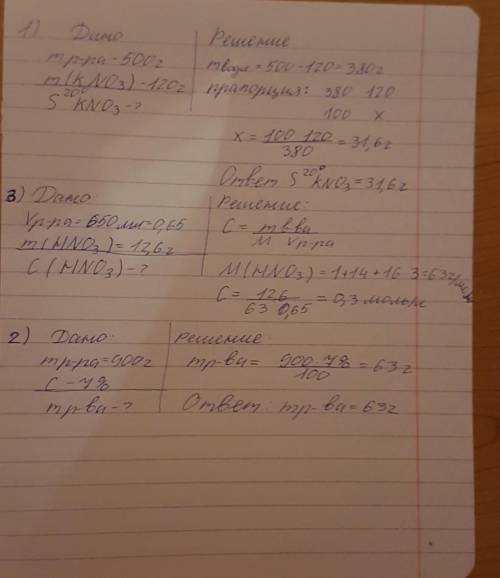 1) Дано
mр-ра - 500г
m(KNO3) - 120г
S 20° KNO3 - ?
Решение
mводы = 500 - 120 = 380г
прапорция: 380 120
100 x
x = 100 120 / 380 = 31,6г
Ответ S 20° KNO3 = 31,6г
3) Дано
Vр-ра = 650 мл = 0,65
m(HNO3) = 12,6г
C(HNO3) - ?
Решение:
C = m в ва / M Vр-ра
M(HNO3) = 1 + 14 + 16 3 = 63г/моль
C = 126 / 63 0,65 = 0,3 моль/л
2) Дано:
mр-ра = 900г
C - 7%
mр-ва - ?
Решение:
mр-ва = 900 7% / 100 = 63г
Ответ: mр-ва = 63г